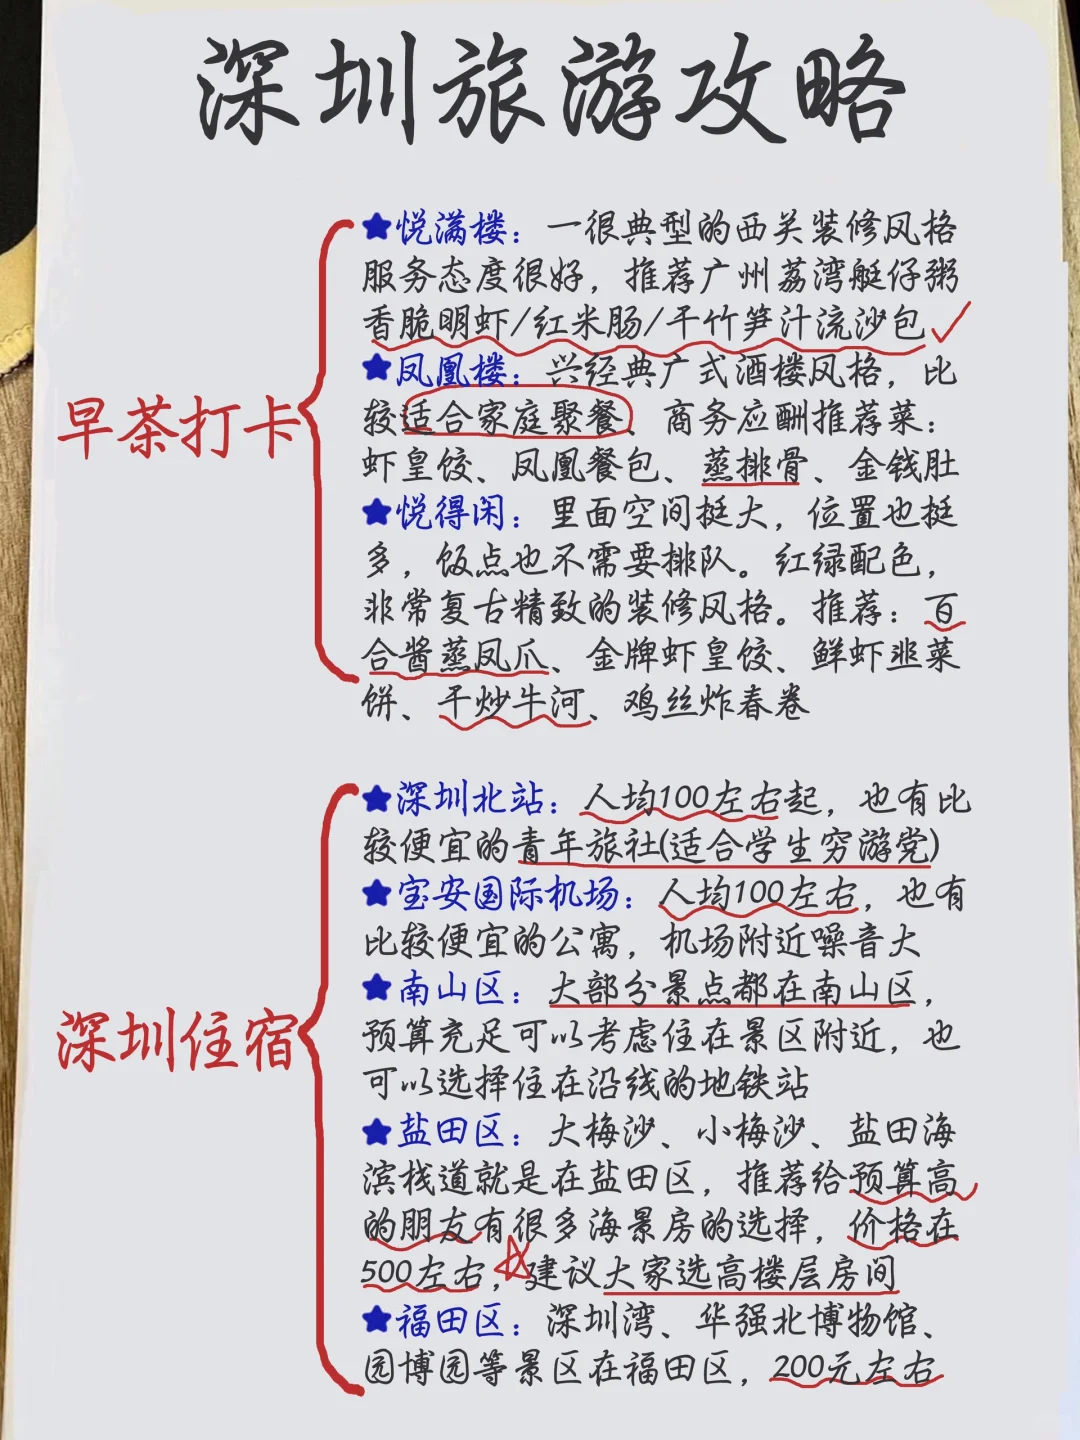 深圳旅游攻略
早茶打卡
★悦满楼：一很典型的西关装修风格
服务态度很好，推荐广州荔湾艇仔粥
香脆明虾/红米肠/干竹笋汁流沙包
★凤凰楼：兴经典广式酒楼风格，比
较适合家庭聚餐、商务应酬推荐菜：
虾皇饺、凤凰餐包、蒸排骨、金钱肚
★悦得闲：里面空间挺大，位置也挺
多，饭点也不需要排队。红绿配色，
非常复古精致的装修风格。推荐：百
合酱蒸凤爪、金牌虾皇饺、鲜虾韭菜
饼、干炒牛河、鸡丝炸春卷
深圳住宿
★深圳北站：人均100左右起，也有比
较便宜的青年旅社(适合学生穷游党)
★宝安国际机场：人均100左右，也有
比较便宜的公寓，机场附近噪音大
★南山区：大部分景点都在南山区，
预算充足可以考虑住在景区附近，也
可以选择住在沿线的地铁站
★盐田区：大梅沙、小梅沙、盐田海
滨栈道就是在盐田区，推荐给预算高
的朋友有很多海景房的选择，价格在
500左右，建议大家选高楼层房间
★福田区：深圳湾、华强北博物馆、
园博园等景区在福田区，200元左右